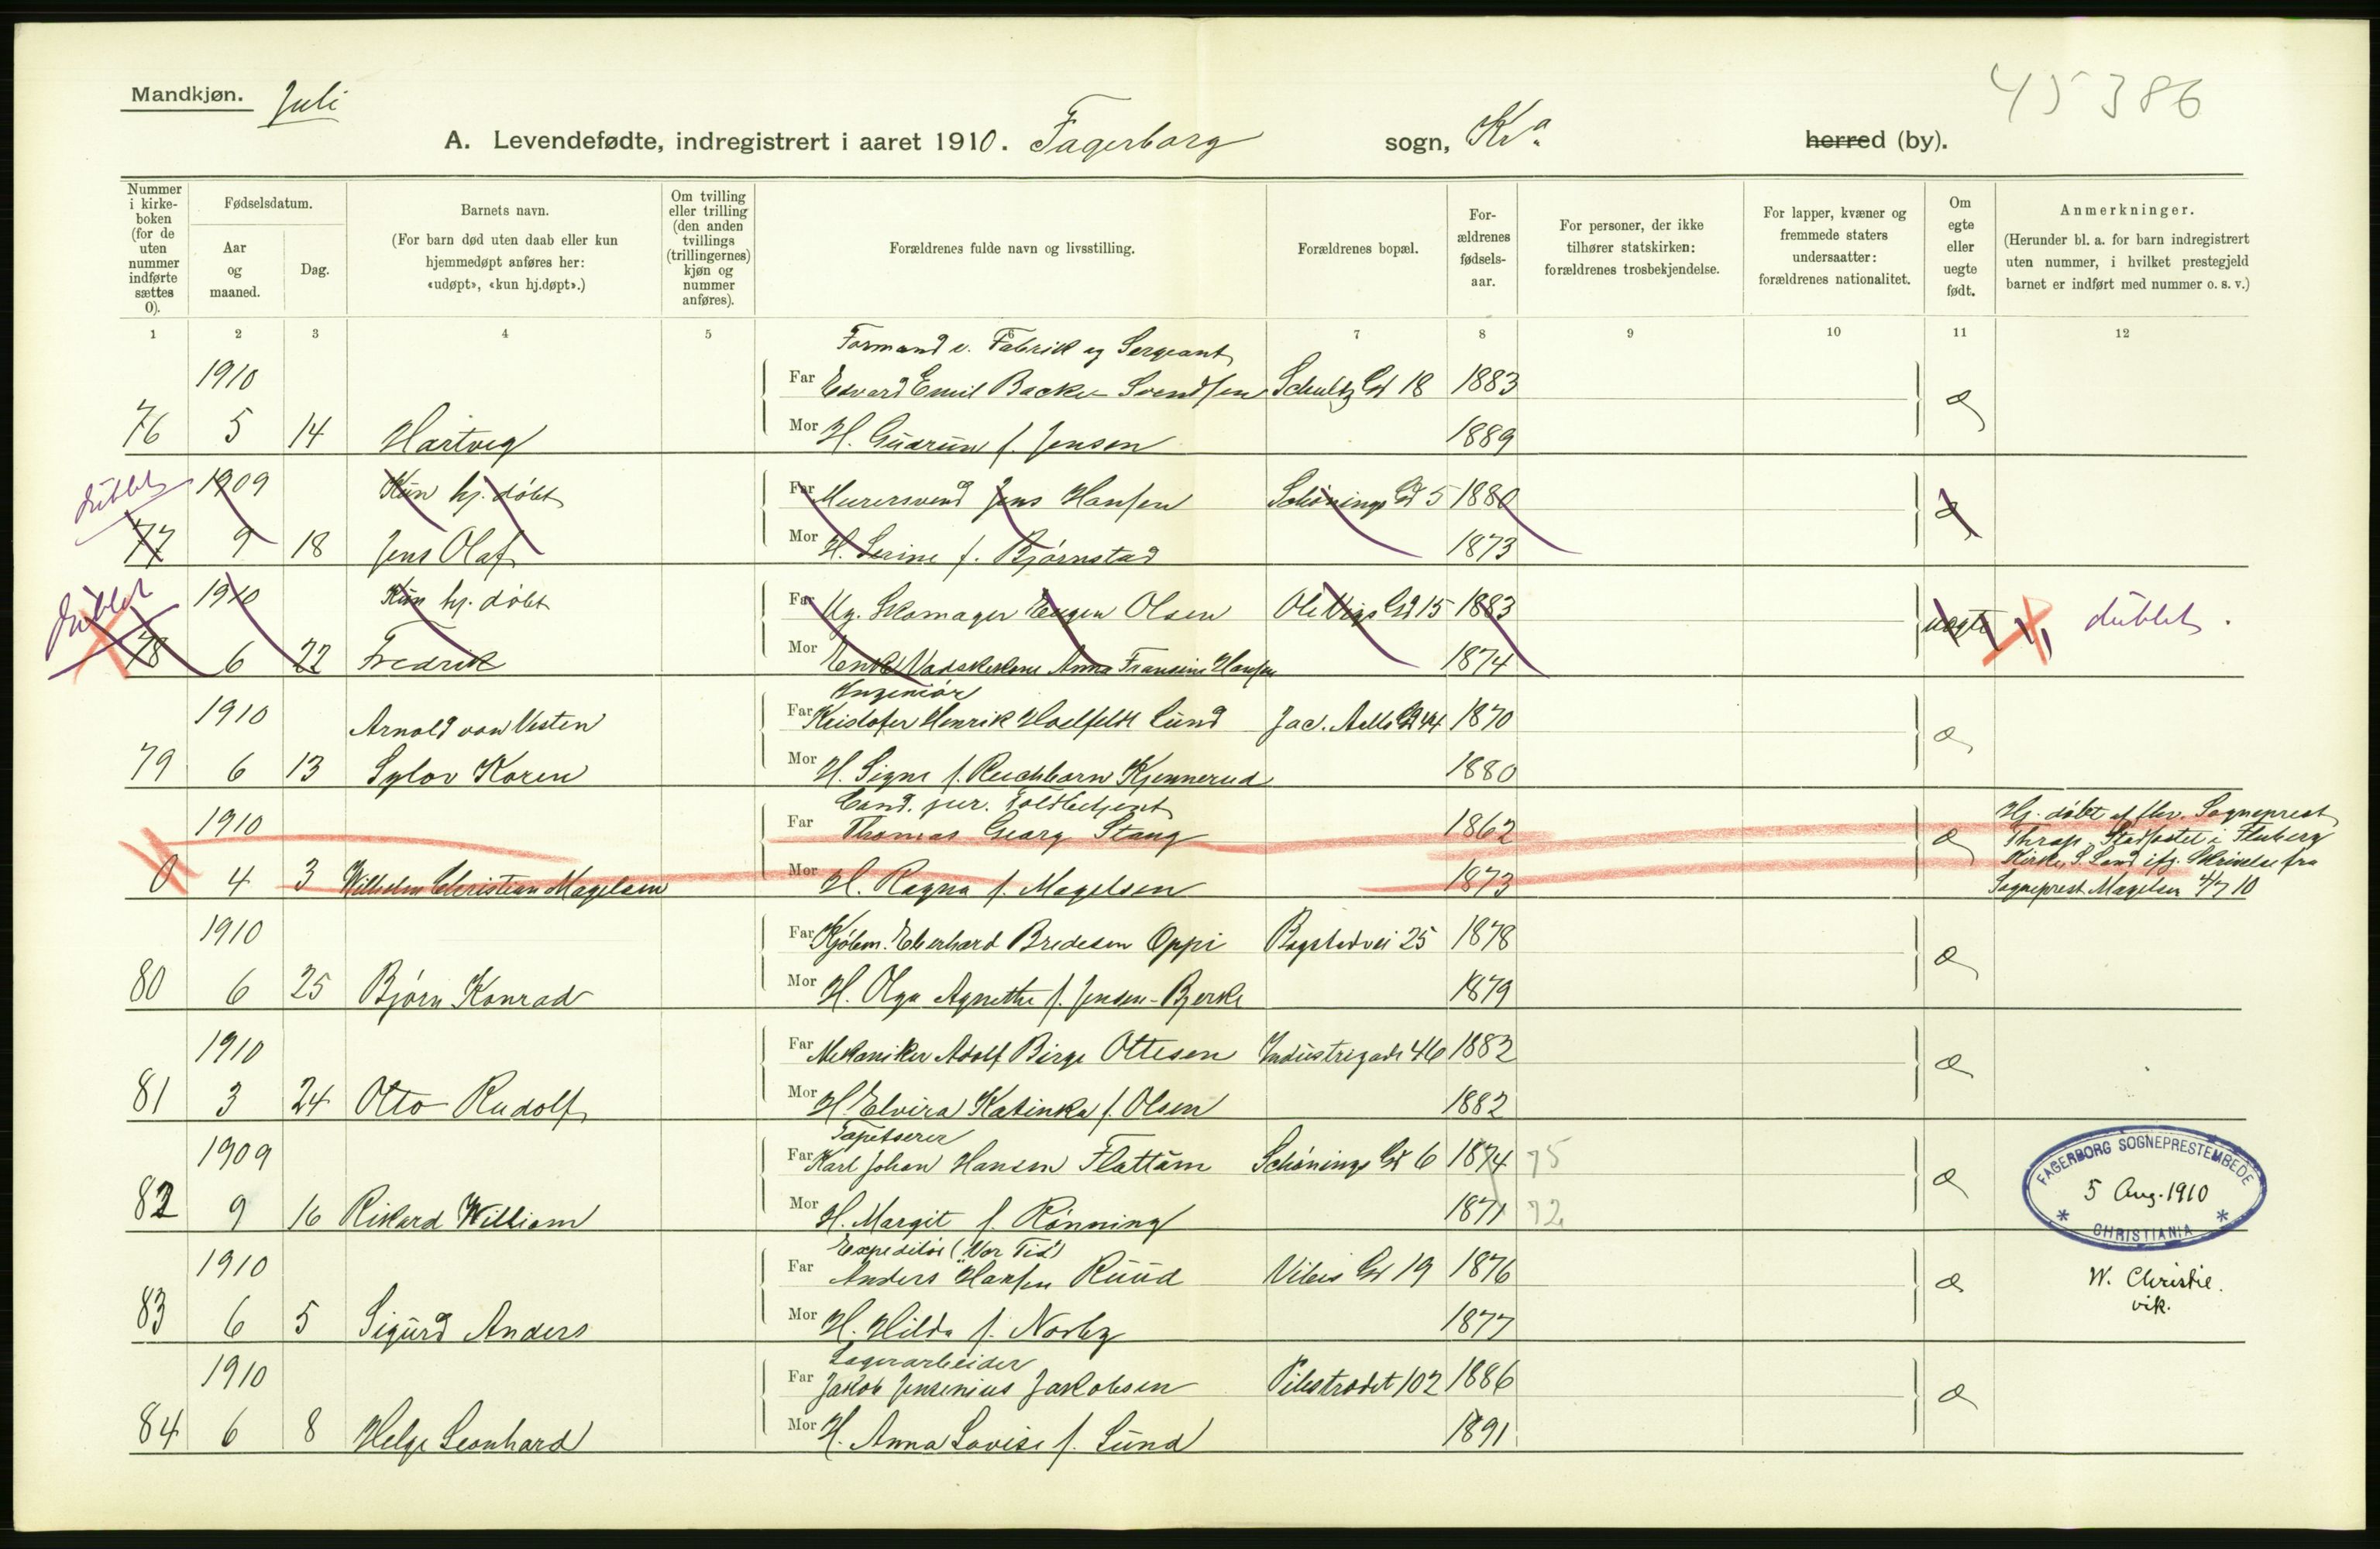 Mandkjøn. Juli
45386
A. Levendefødte, indregistrert i aaret 1910. Fagerborg sogn, Kr.a herred (by).
Nummer i kirkeboken (for de uten nummer indførte sættes 0).
Fødselsdatum.
Aar og maaned.
Dag.
Barnets navn.
(For barn død uten daab eller kun hjemmedøpt anføres her: «udøpt», «kun hj.døpt».)
Om tvilling eller trilling (den anden tvillings (trillingernes) kjøn og nummer anføres).
Forældrenes fulde navn og livsstilling.
Forældrenes bopæl.
Forældrenes fødselsaar.
For personer, der ikke tilhører statskirken: forældrenes trosbekjendelse.
For lapper, kvæner og fremmede staters undersaatter: forældrenes nationalitet.
Om egte eller uegte født.
Anmerkninger.
(Herunder bl. a. for barn indregistrert uten nummer, i hvilket prestegjeld barnet er indført med nummer o. s. v.)
1 2 3 4 5 6 7 8 9 10 11 12
Formand v. Fabrik og Sergeant
1910 Far Edvard Emil Backe Svendsen Schultz Gd 18 1883 æ
76 5 14 Hartvig Mor H. Gudrun f. Jensen 1889
dublet 1909 Kun hj. døbt Far Murersvend Jens Hansen Schønings Gd 5 1880 æ
77 9 18 Jens Olaf Mor H. Serine f. Bjørnstad 1873
dublet 1910 Kun hj. døbt Far Ug. Skomager Eugen Olsen Ole Vigs Gd 15 1883 uegte dublet.
78 6 22 Fredrik Mor Enke Vadskekone Anna Fransine Hansen 1874
Ingeniør
1910 Arnold von Westen Far Kristofer Henrik Holfeldt Lund Jac. Aalls Gd 44 1870 æ
79 6 13 Sylov Koren Mor H. Signe f. Ruchborn Kjennerud 1880
Cand. jur. Toldbetjent
1910 Far Thomas Georg Stang 1862 æ
0 4 3 Wilhelm Christian Magelsen Mor H. Ragna f. Magelsen 1873
Hj. døbt af Sogneprest
Thrap. Stadfæstet i Fluberg
Kirke, S. Land ifg. Skrivelse fra
Sogneprest Magelsen 4/7 10
1910 Far Kjøbm. Eberhard Bredesen Oppi Bogstadvei 25 1878 æ
80 6 25 Bjørn Konrad Mor H. Olga Agnethe f. Jensen-Bjerke 1879
1910 Far Mekaniker Adolf Birge Ottesen Industrigade 46 1882 æ
81 3 24 Otto Rudolf Mor H. Elvira Katinka f. Olsen 1882
Tapetserer
1909 Far Karl Johan Hansen Flattum Schønings Gd 6 1874 75 æ
82 9 16 Rikard William Mor H. Margit f. Rønning 1871 72
FAGERBORG SOGNEPRESTEMBEDE
5 Aug. 1910
* CHRISTIANIA *
Expeditør ("Vor Tid")
1910 Far Anders Hansen Ruud Vibes Gd 19 1876 æ
83 6 5 Sigurd Anders Mor H. Hilda f. Norby 1877
W. Christie.
vik.
Lagerarbeider
1910 Far Jakob Jensenius Jakobsen Pilestrædet 102 1886 æ
84 6 8 Helge Leonhard Mor H. Anna Lovise f. Lund 1891